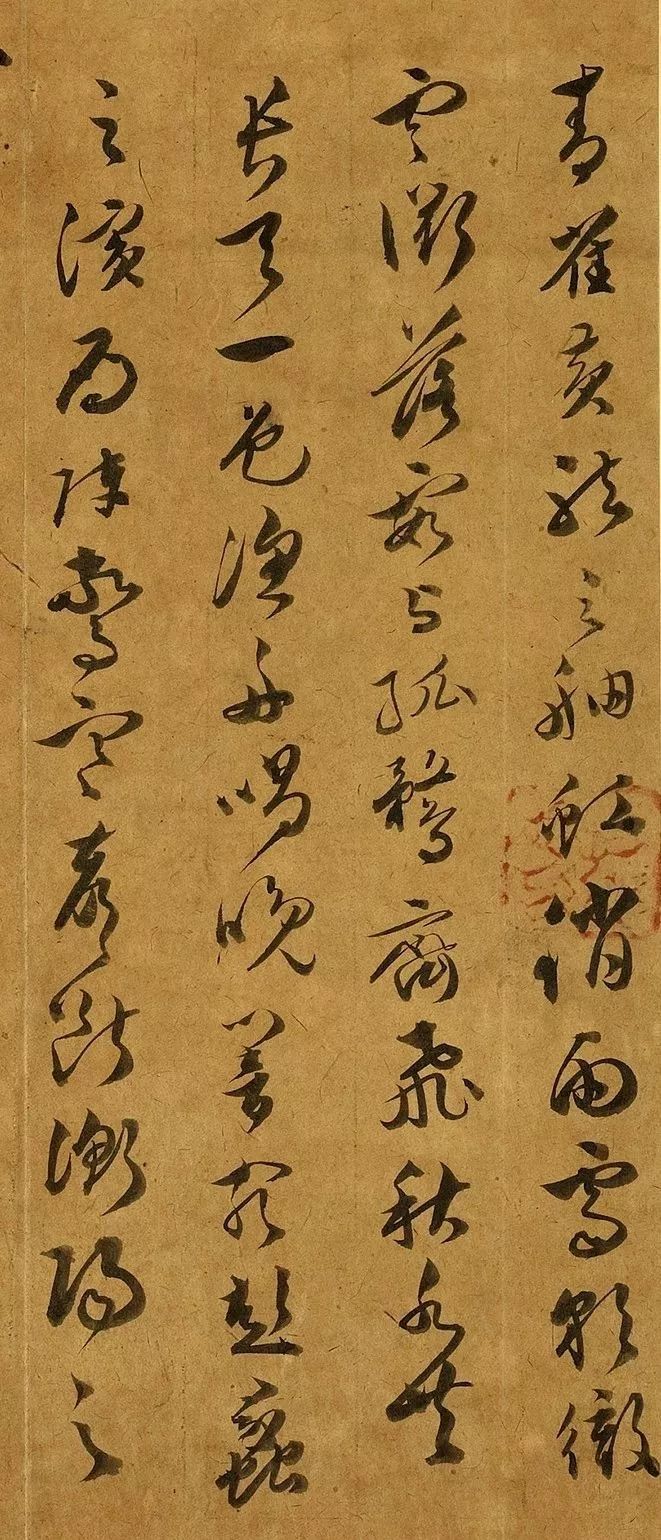 青雀黃龍之舳虹消雨霽彩徹
雲衢落霞與孤鶩齊飛秋水共
長天一色漁舟唱晚響窮彭蠡
之濱雁陣驚寒聲斷衡陽之